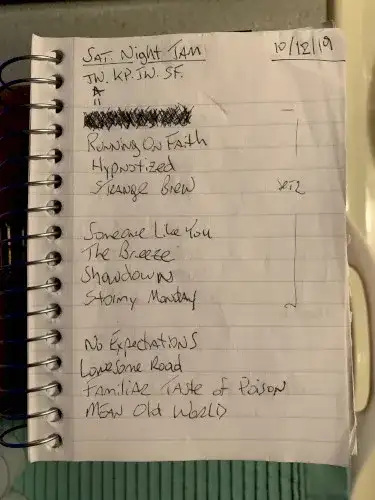 SAT. Night JAM
10/12/19
JW. KP. JW. SF.
A
Running On Faith
Hypnotized
STRANGE BREW
SET 2
Someone Like You
The Breeze
Showdown
Stormy Monday
No Expectations
Lonesome Road
Familiar Taste of Poison
MEAN Old WORLD